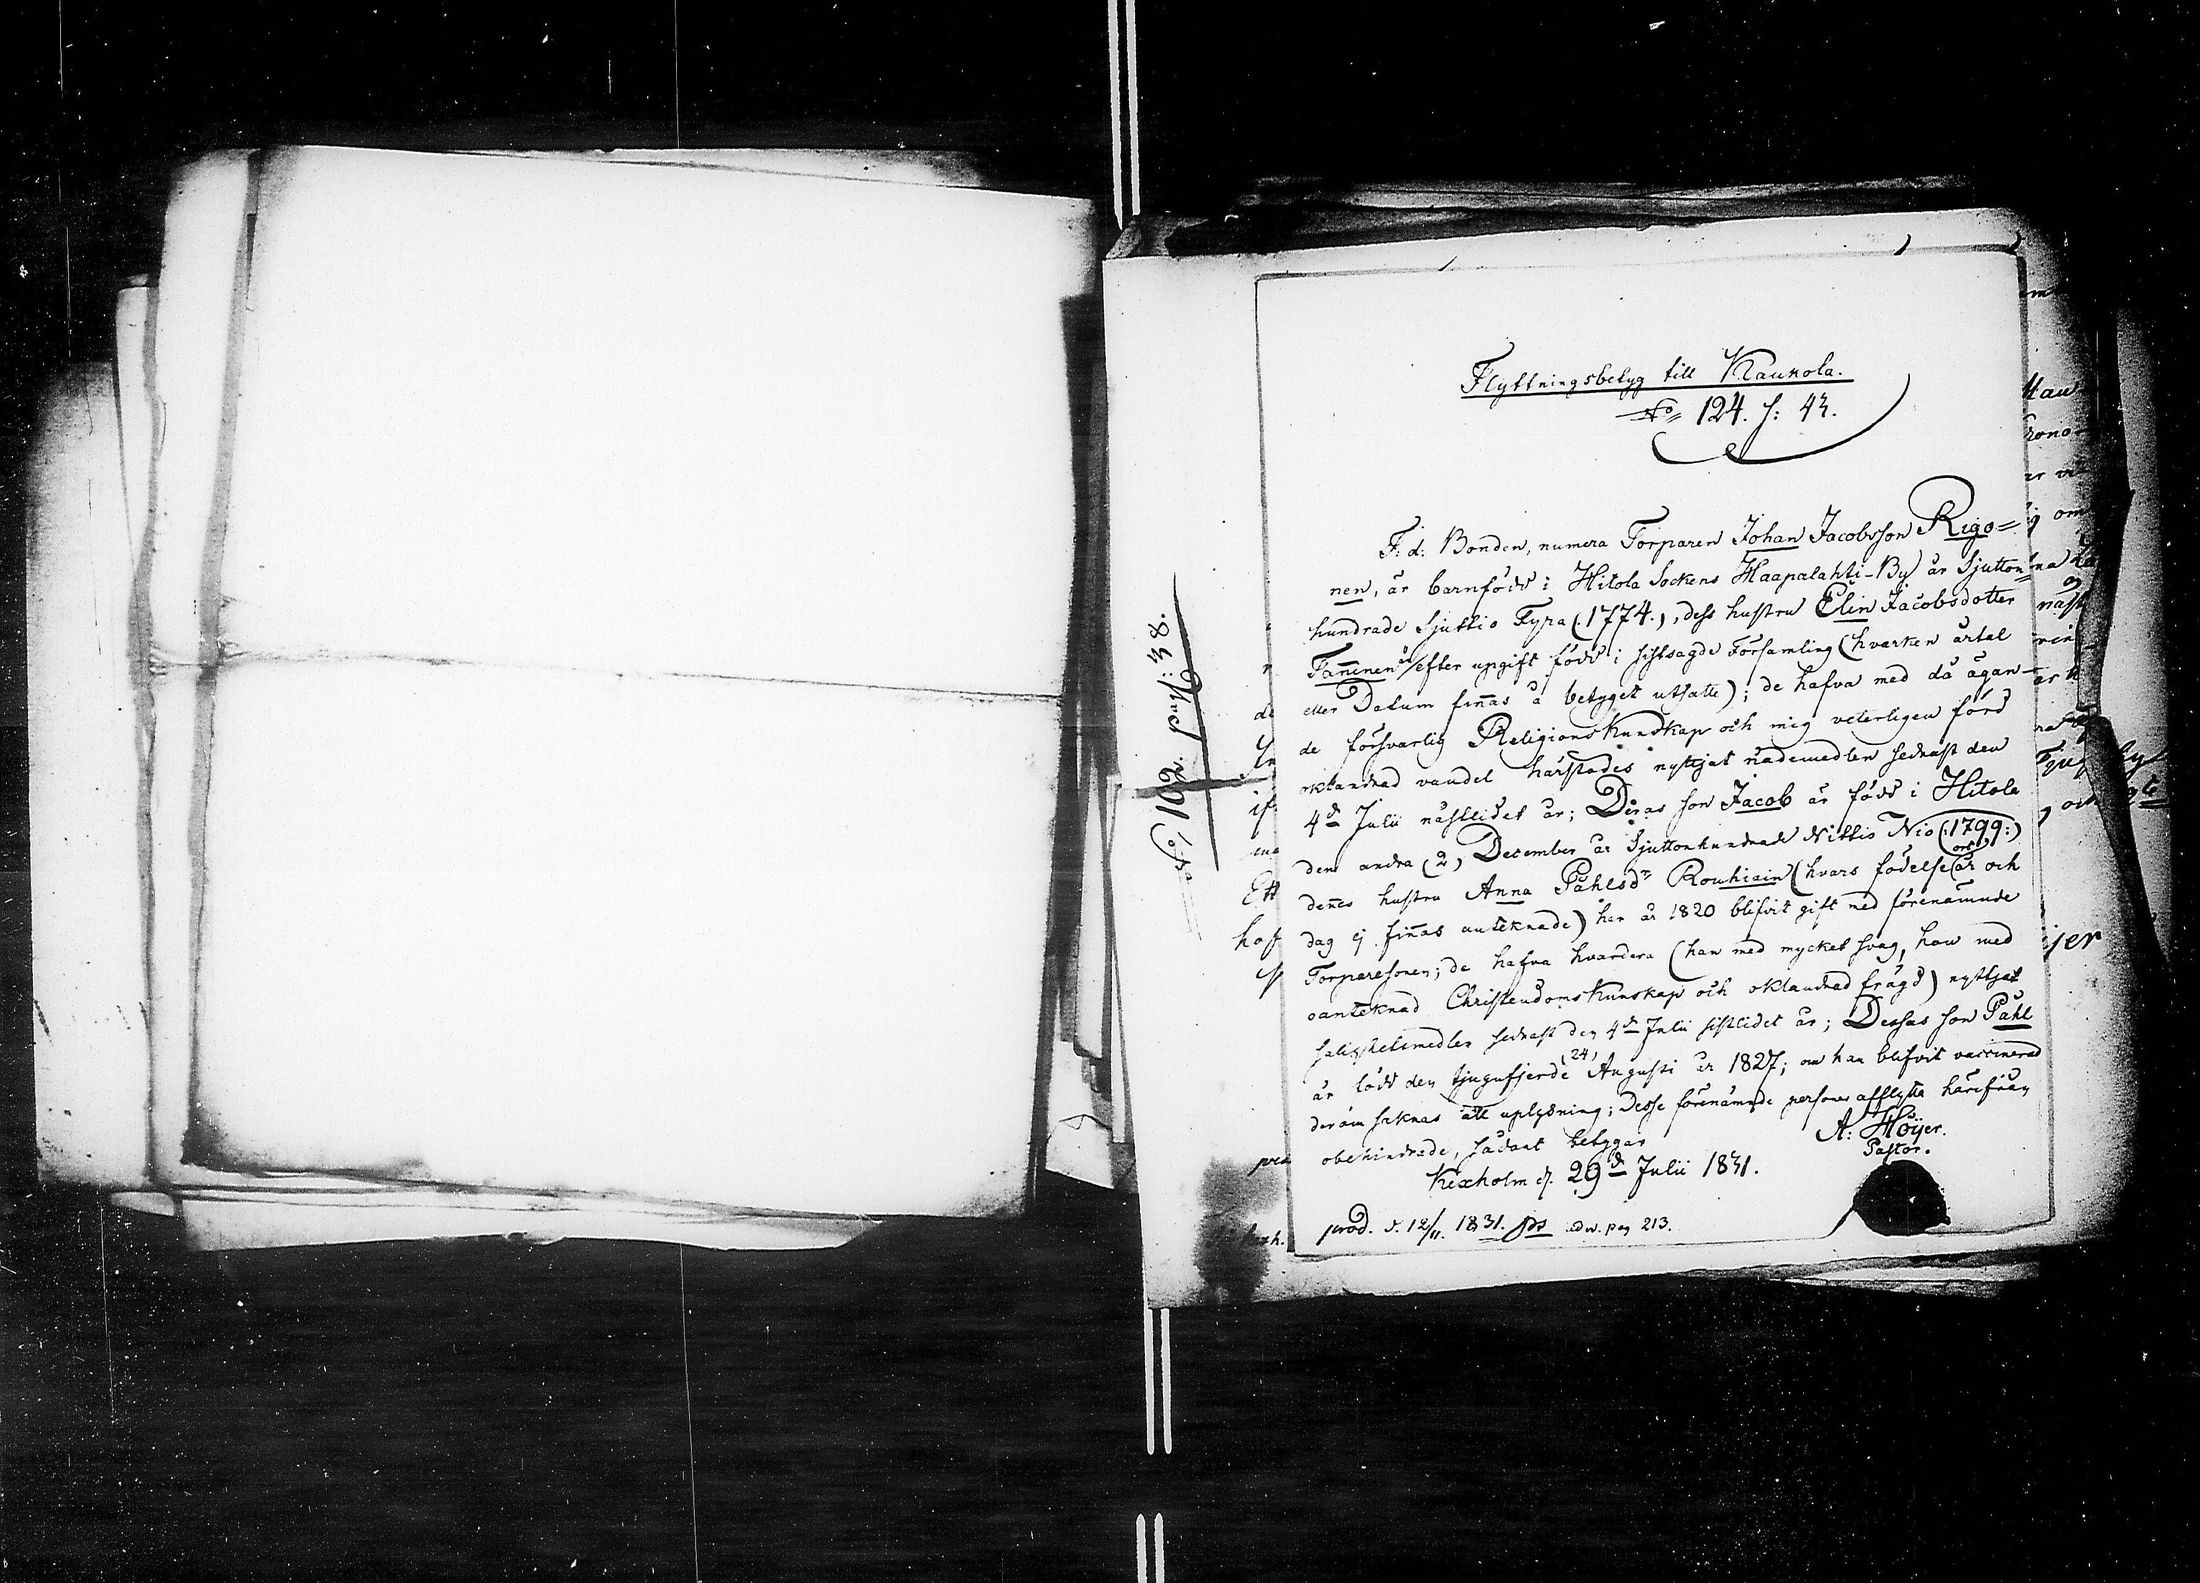 Flyttningsbetyg till Kaukola.
No 124. s: 43.
F. d. Bonden, numera Torparen Johan Jacobsson Rigo=
nen, är barnfödd i Hitola Sockens Haapalahti-By år Sjutton=
hundrade Sjuttio Fyra (1774.), dess hustru Elin Jacobsdotter
Fam̄inen är efter upgift född i sistsagde Församling (hvarken årtal
eller Datum fin̄as å betyget utsatte); de hafva med då ägan-
de försvarlig Religions Kunskap och mig veterligen förd
oklandrad vandel härstädes nyttjat nådemedlen sednast den
4de Julii nästlidet år; Deras son Jacob är född i Hitola
den andra (2) December år Sjuttonhundrade Nittio Nio (1799:)
den̄es hustru Anna Påhlsdr Rouhiain (hvars födelse ort, år och
dag ej fin̄as anteknade) har år 1820 blifvit gift med förenämnde
Torparesonen; de hafva hvardera (han med mycket svag, hon med
oanteknad Christendoms Kunskap och oklandrad frägd) nyttjat
salighetsmedlen sednast den 4de Julii sistlidet år; Dessas son Påhl
är född den tjugufjerde (24) Augusti år 1827; om han blifvit vaccinerad
derom saknas all uplysning; Desse förenämnde personer afflytta härifrån
obehindrade, sådant betygar
Kexholm d. 29de Julii 1831.
A: Höijer.
Pastor.
prod. d. 12/11. 1831. adw. pag 213.
No 102. pag: 38.